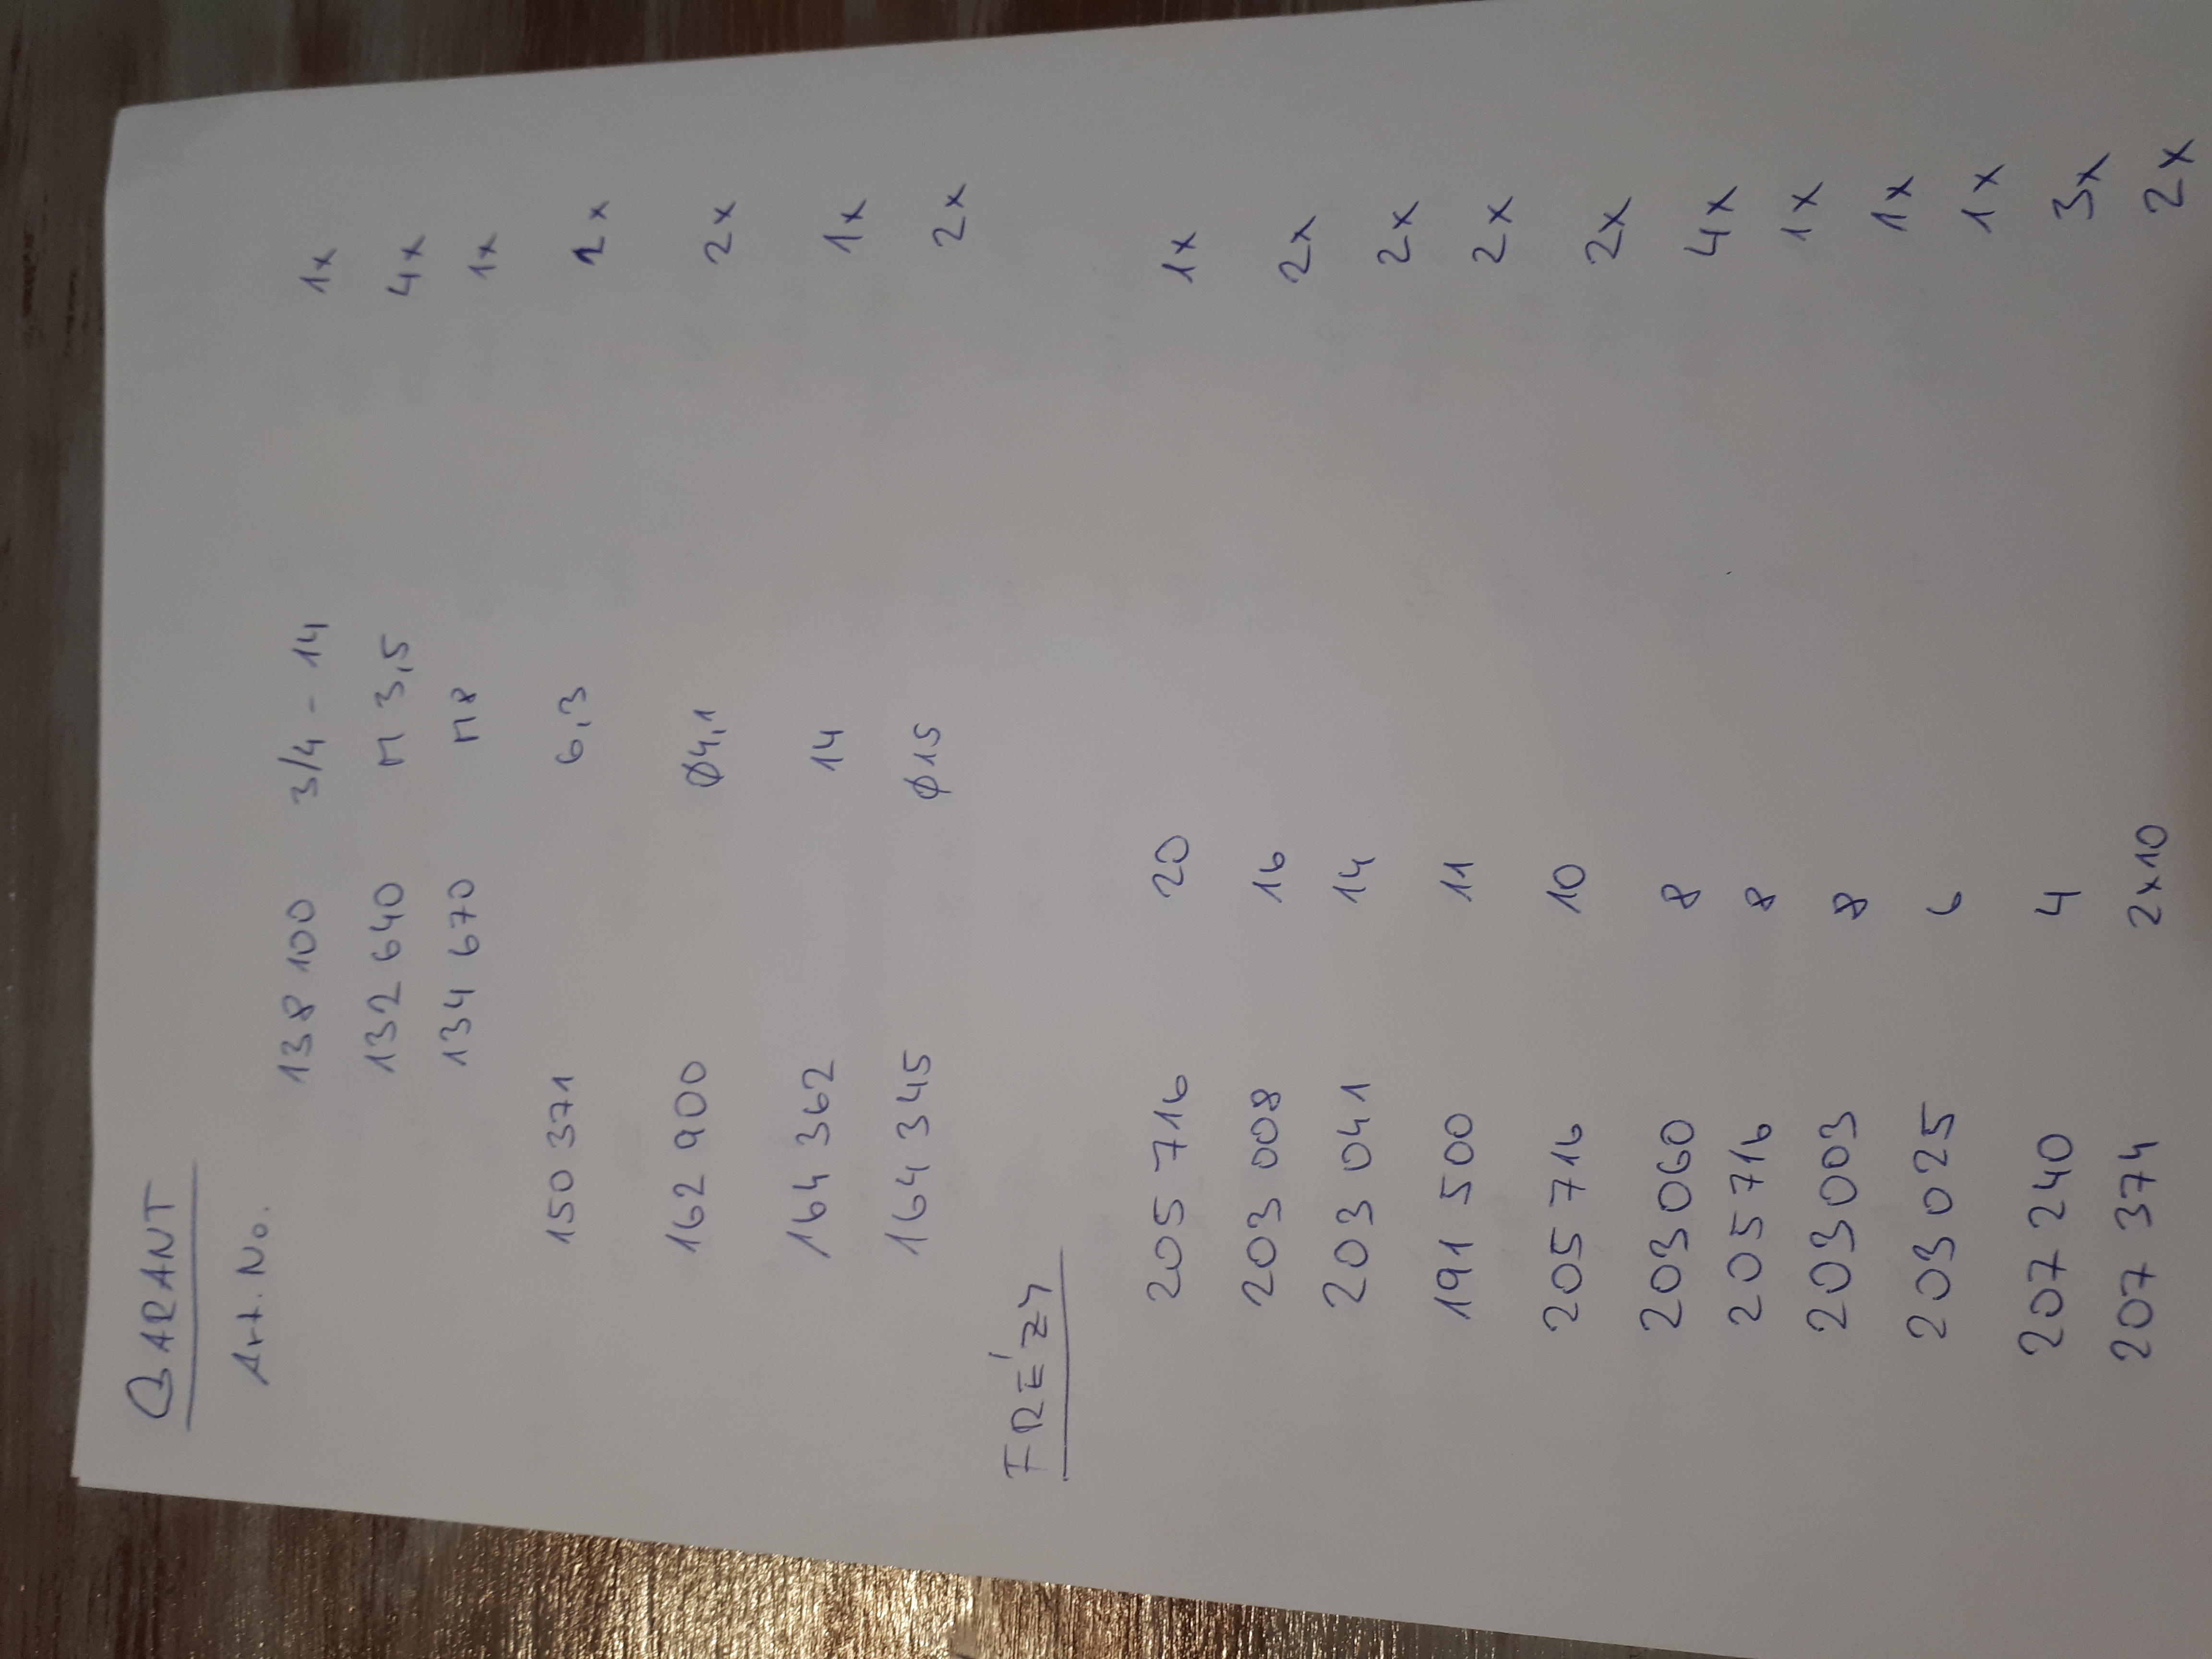 GARANT
Art. No.
138 100 3/4 - 14 1x
132 640 M 3,5 4x
134 670 M8 1x
150 371 6,3 1x
162 900 Ø4,1 2x
164 362 14 1x
164 345 Ø15 2x
FRÉZY
205 716 20 1x
203 008 16 2x
203 041 14 2x
191 500 11 2x
205 716 10 2x
203 060 8 4x
205 716 8 1x
203 003 8 1x
203 025 6 1x
207 240 4 3x
207 374 2x10 2x